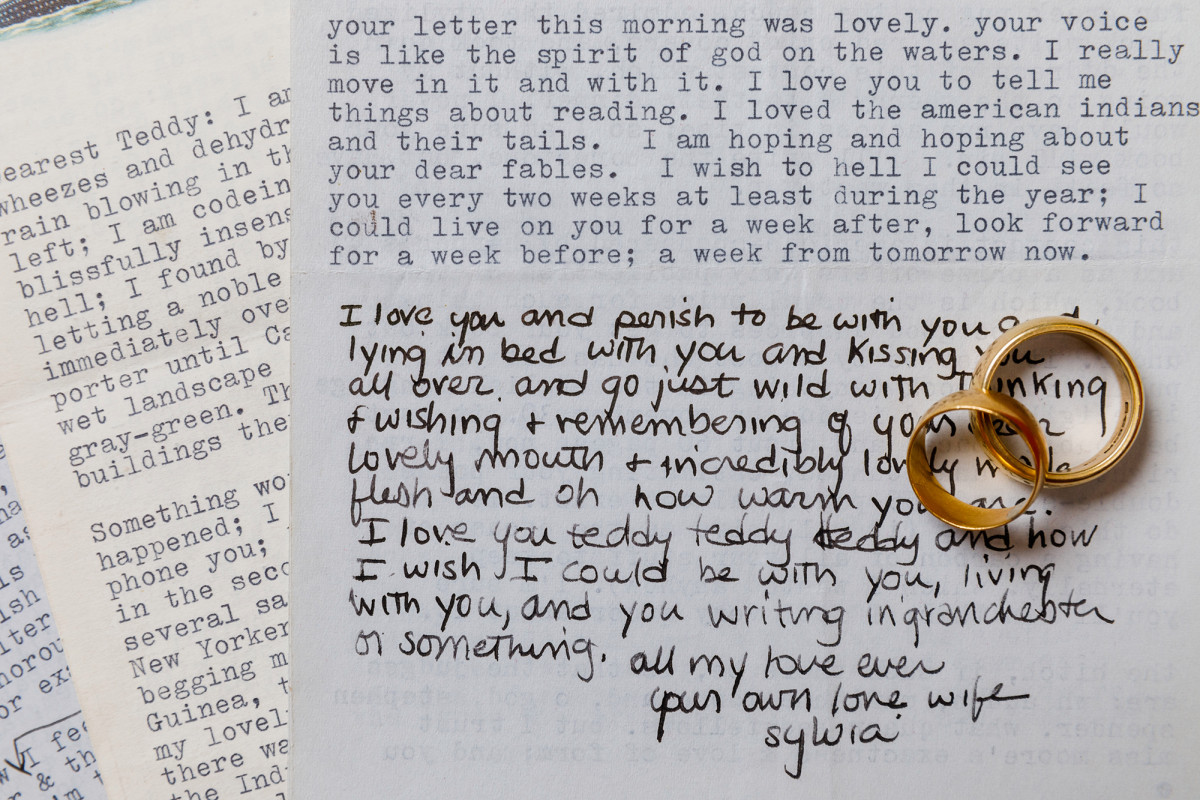 earest Teddy: I a
wheezes and dehydr
rain blowing in th
left; I am codein
blissfully insens
hell; I found by
letting a noble
immediately ove
porter until Ca
wet landscape
gray-green. Th
buildings the
Something wo
happened; I
phone you;
in the seco
several sa
New Yorker
begging m
Guinea, t
my lovel
there wa
the Ind
I fee
& th
your letter this morning was lovely. your voice
is like the spirit of god on the waters. I really
move in it and with it. I love you to tell me
things about reading. I loved the american indians
and their tails. I am hoping and hoping about
your dear fables. I wish to hell I could see
you every two weeks at least during the year; I
could live on you for a week after, look forward
for a week before; a week from tomorrow now.
I love you and perish to be with you and
lying in bed with you and kissing you
all over and go just wild with thinking
& wishing & remembering of your dear
lovely mouth & incredibly lovely made
flesh and oh how warm you are.
I love you teddy teddy teddy and how
I wish I could be with you, living
with you, and you writing in granchester
or something. all my love ever
your own love wife
sylvia